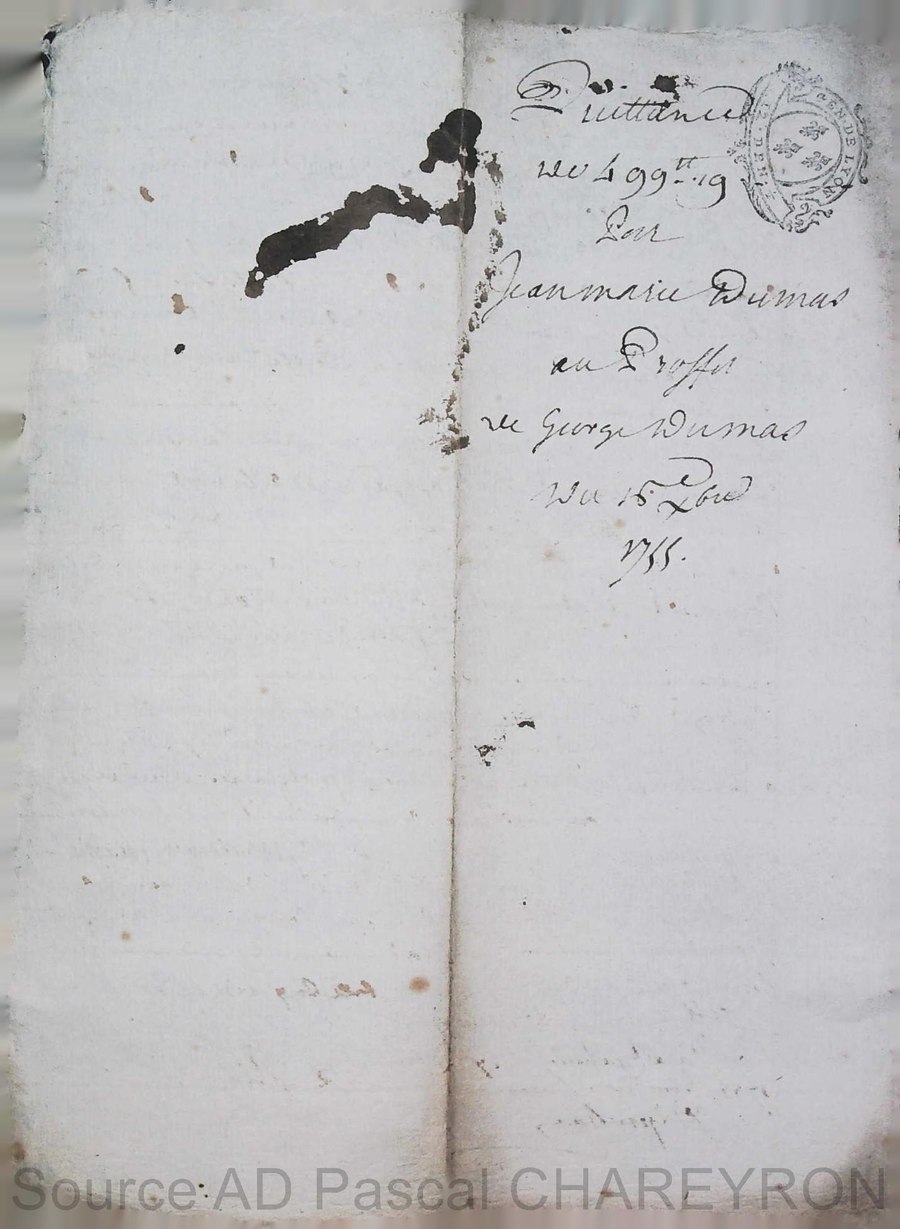 Quittance
de 499tt 19
Pour
Jean marie Dumas
au Proffit
de George Dumas
Du 15e Xbre
1755.
GEN DE LYON
Source AD Pascal CHAREYRON